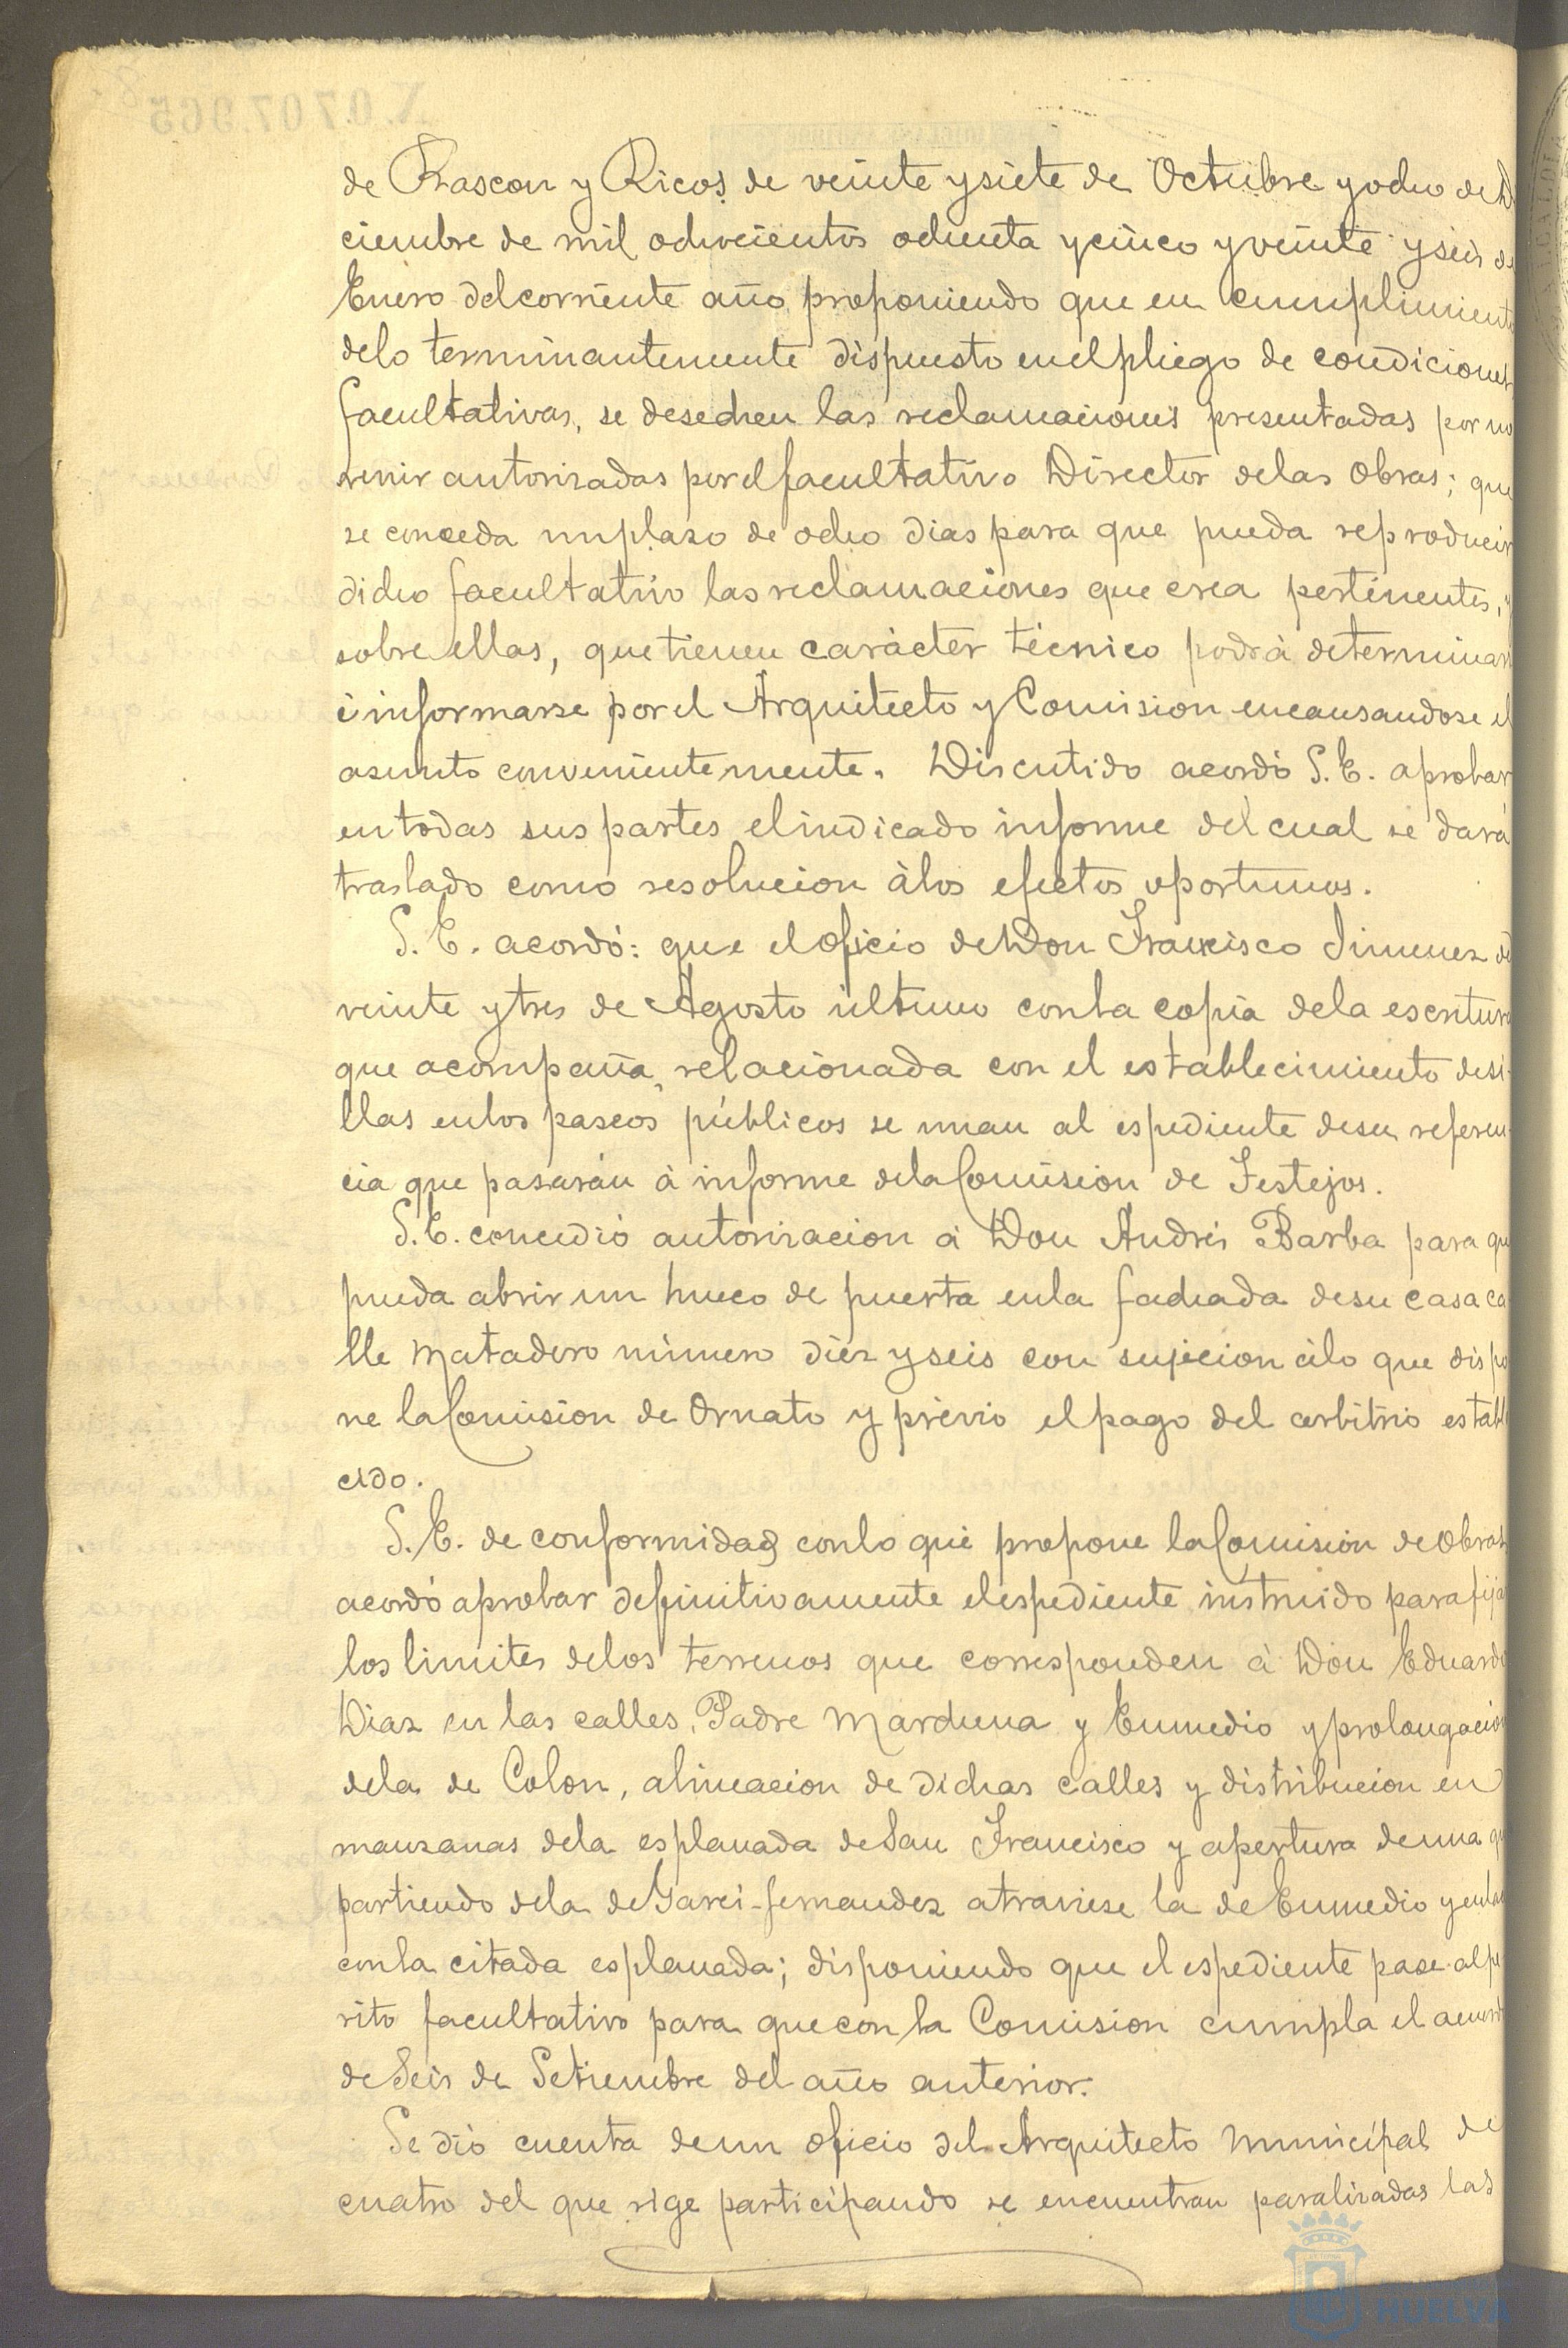 X.0.707.965
de Rascon y Ricos de veinte y siete de Octubre y ocho de Di
ciembre de mil ochocientos ochenta y cinco y veinte y seis de
Enero del corriente año proponiendo que en cumplimiento
de lo terminantemente dispuesto en el pliego de condiciones
facultativas, se desechen las reclamaciones presentadas por no
venir autorizadas por el facultativo Director de las Obras; que
se conceda un plazo de ocho dias para que pueda reproducir
dicho facultativo las reclamaciones que crea pertinentes, y
sobre ellas, que tienen carácter técnico podrá determinar
é informarse por el Arquitecto y Comision encausandose el
asunto convenientemente. Discutido acordó S.E. aprobar
en todas sus partes el indicado informe del cual se dará
traslado como resolucion á los efectos oportunos.
S.E. acordó: que el oficio de Don Francisco Jimenez de
veinte y tres de Agosto último con la copia de la escritura
que acompaña, relacionada con el establecimiento de si-
llas en los paseos públicos se unan al espediente de su referen-
cia que pasarán á informe de la Comision de Festejos.
S.E. concedió autorizacion á Don Andrés Barba para que
pueda abrir un hueco de puerta en la fachada de su casa ca
lle Matadero número diez y seis con sujecion á lo que dispo
ne la Comision de Ornato y prévio el pago del arbitrio estable
cido.
S.E. de conformidad con lo que propone la Comision de Obras
acordó aprobar definitivamente el espediente instruido para fijar
los limites de los terrenos que corresponden á Don Eduardo
Diaz en las calles, Padre Marchena y Enmedio y prolongacion
de la de Colon, alineacion de dichas calles y distribucion en
manzanas de la esplanada de San Francisco y apertura de una que
partiendo de la de Garci-fernandez atraviese la de Enmedio y enlace
con la citada esplanada; disponiendo que el espediente pase al pe
rito facultativo para que con la Comision cumpla el acuerdo
de Seis de Setiembre del año anterior.
Se dió cuenta de un oficio del Arquitecto Municipal de
cuatro del que rige participando se encuentran paralizadas las
HUELVA